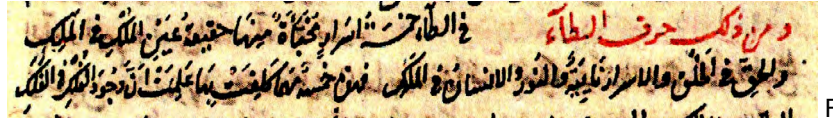 ومن ذلك حرف الطاء في الطاء خمسة أسرار مخبأة منها حقيقة عين الملك في الملك
والحق في الخلق والاسرار نائبة والنور والانسان في الملك فهذه خمسة مهما كلفت بها علمت أن وجود الفلك في الفلك